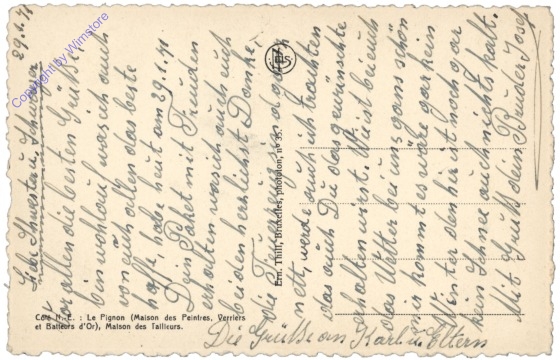 29.1.41
Liebe Schwester u. Schwager
Vor allem die besten Grüße
bin wohlauf was ich auch
von euch allen das beste
hoffe, habe heut am 29.1.41
Dein Paket mit Freuden
erhalten was ich auch euch
beiden herzlichst Danke,
die
nett, werde auch ich trachten
das auch Du das gewünschte
erhalten wirst. Wie ist bei euch
das Wetter bei uns ganz schön
mir kommt es wäre gar kein
Winter den hier ist noch gar
kein Schnee auch nicht kalt.
Mit Gruß dein Bruder Josef
Die Grüße an Karl u. Eltern
Ern. Thill, Bruxelles, photolon, nº 8.
Côté N.-E. : Le Pignon (Maison des Peintres, Verriers
et Batteurs d'Or), Maison des Tailleurs.
Copyright by Wimstore